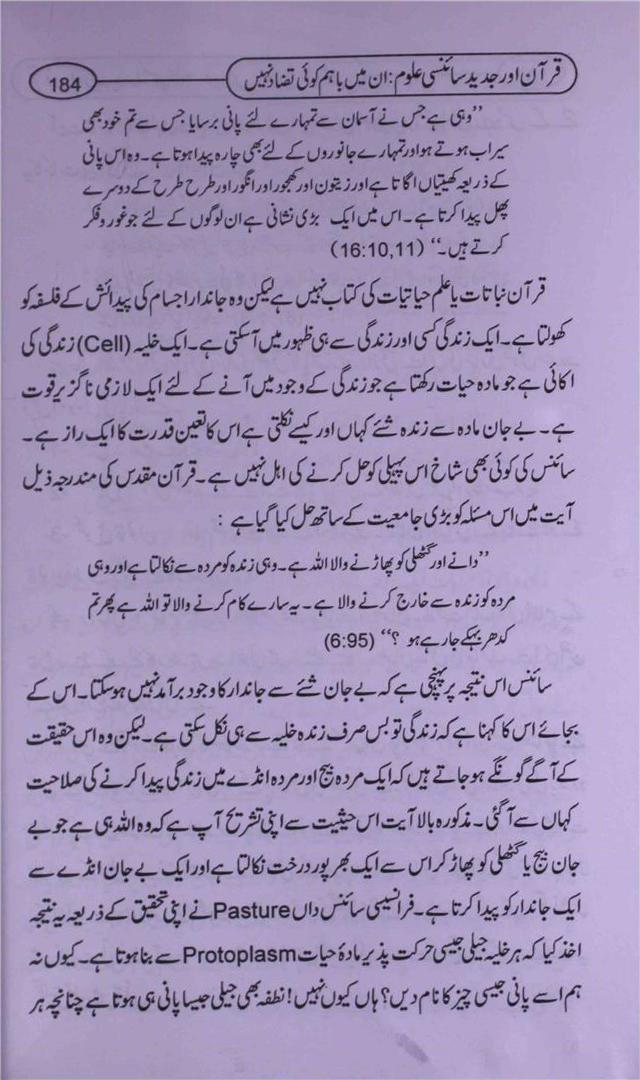 184
قرآن اور جدید سائنسی علوم: ان میں باہم کوئی تضاد نہیں
”وہی ہے جس نے آسمان سے تمہارے لئے پانی برسایا جس سے تم خود بھی
سیراب ہوتے ہو اور تمہارے جانوروں کے لئے بھی چارہ پیدا ہوتا ہے۔ وہ اس پانی
کے ذریعہ کھیتیاں اگاتا ہے اور زیتون اور کھجور اور انگور اور طرح طرح کے دوسرے
پھل پیدا کرتا ہے۔ اس میں ایک بڑی نشانی ہے ان لوگوں کے لئے جو غور و فکر
کرتے ہیں۔“ (16:10,11)
قرآن نباتات یا علم حیاتیات کی کتاب نہیں ہے لیکن وہ جاندار اجسام کی پیدائش کے فلسفہ کو
کھولتا ہے۔ ایک زندگی کسی اور زندگی سے ہی ظہور میں آسکتی ہے۔ ایک خلیہ (Cell) زندگی کی
اکائی ہے جو مادہ حیات رکھتا ہے جو زندگی کے وجود میں آنے کے لئے ایک لازمی ناگزیر قوت
ہے۔ بے جان مادہ سے زندہ شئے کہاں اور کیسے نکلتی ہے اس کا تعین قدرت کا ایک راز ہے۔
سائنس کی کوئی بھی شاخ اس پہیلی کو حل کرنے کی اہل نہیں ہے۔ قرآن مقدس کی مندرجہ ذیل
آیت میں اس مسئلہ کو بڑی جامعیت کے ساتھ حل کیا گیا ہے :
”دانے اور گٹھلی کو پھاڑنے والا اللہ ہے۔ وہی زندہ کو مردہ سے نکالتا ہے اور وہی
مردہ کو زندہ سے خارج کرنے والا ہے۔ یہ سارے کام کرنے والا تو اللہ ہے پھر تم
کدھر بہکے جا رہے ہو ؟“ (6:95)
سائنس اس نتیجہ پر پہنچی ہے کہ بے جان شئے سے جاندار کا وجود برآمد نہیں ہو سکتا۔ اس کے
بجائے اس کا کہنا ہے کہ زندگی تو بس صرف زندہ خلیہ سے ہی نکل سکتی ہے۔ لیکن وہ اس حقیقت
کے آگے گونگے ہو جاتے ہیں کہ ایک مردہ بیج اور مردہ انڈے میں زندگی پیدا کرنے کی صلاحیت
کہاں سے آگئی۔ مذکورہ بالا آیت اس حیثیت سے اپنی تشریح آپ ہے کہ وہ اللہ ہی ہے جو بے
جان بیج یا گٹھلی کو پھاڑ کر اس سے ایک بھرپور درخت نکالتا ہے اور ایک بے جان انڈے سے
ایک جاندار کو پیدا کرتا ہے۔ فرانسیسی سائنس داں Pasture نے اپنی تحقیق کے ذریعہ یہ نتیجہ
اخذ کیا کہ ہر خلیہ جیلی جیسی حرکت پذیر مادۂ حیات Protoplasm سے بنا ہوتا ہے۔ کیوں نہ
ہم اسے پانی جیسی چیز کا نام دیں؟ ہاں کیوں نہیں! نطفہ بھی جیلی جیسا پانی ہی ہوتا ہے چنانچہ ہر